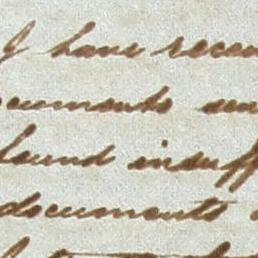 I have recei
ocuments sen
found insuff
documents